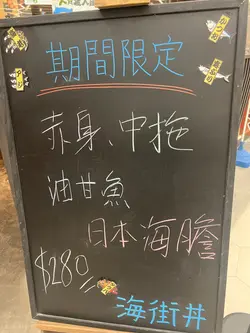 期間限定
赤身、中拖
油甘魚
日本海膽
$280
海街丼